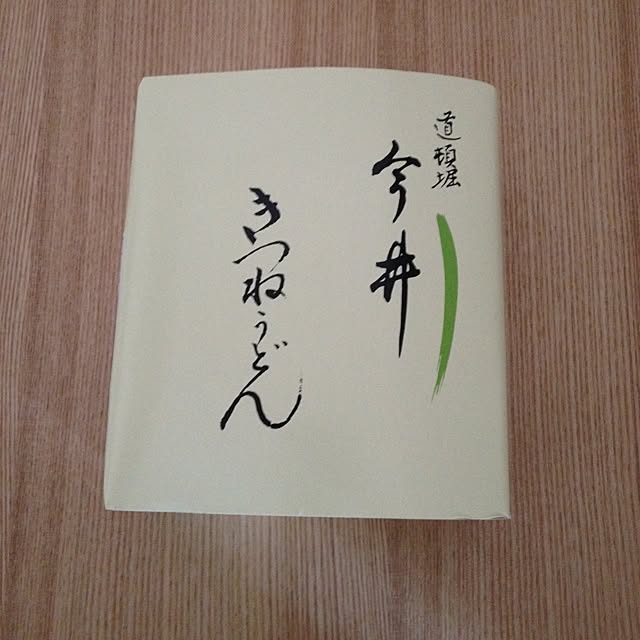 道頓堀
今井
きつねうどん